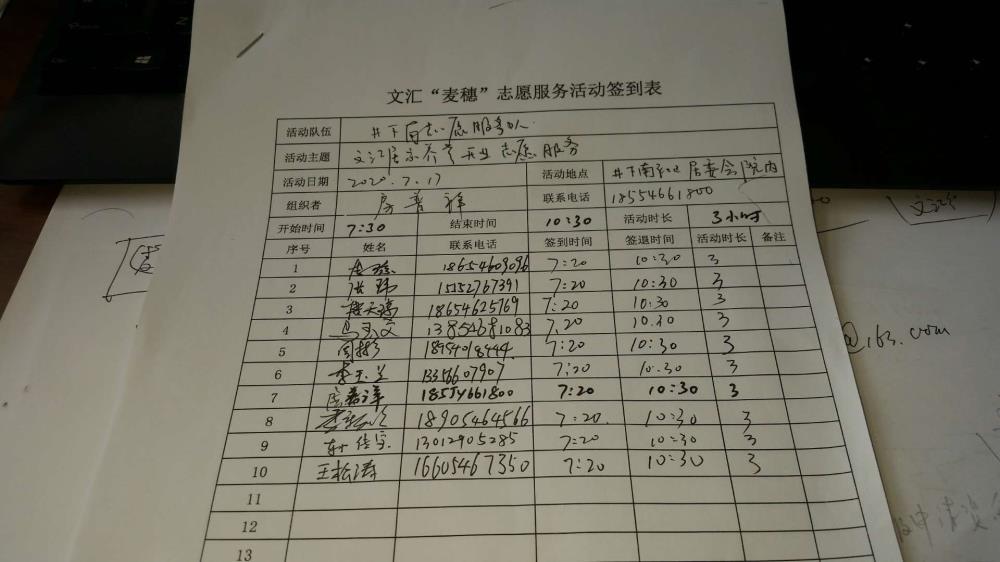 文汇“麦穗”志愿服务活动签到表
活动队伍 井下南志愿服务队
活动主题 志愿服务
活动日期 2020.7.17 活动地点 井下南社区居委会院内
组织者 房善祥 联系电话 18554661800
开始时间 7:30 结束时间 10:30 活动时长 3小时
序号 姓名 联系电话 签到时间 签退时间 活动时长 备注
1 18654609096 7:20 10:30 3
2 张玮 15152767391 7:20 10:30 3
3 18654625769 7:20 10:30 3
4 马玉文 13854681083 7:20 10:30 3
5 18954018444 7:20 10:30 3
6 李玉兰 7:20 10:30 3
7 房善祥 18554661800 7:20 10:30 3
8 18905464566 7:20 10:30 3
9 13012905285 7:20 10:30 3
10 王松涛 16605467350 7:20 10:30 3
11
12
13
@163.com